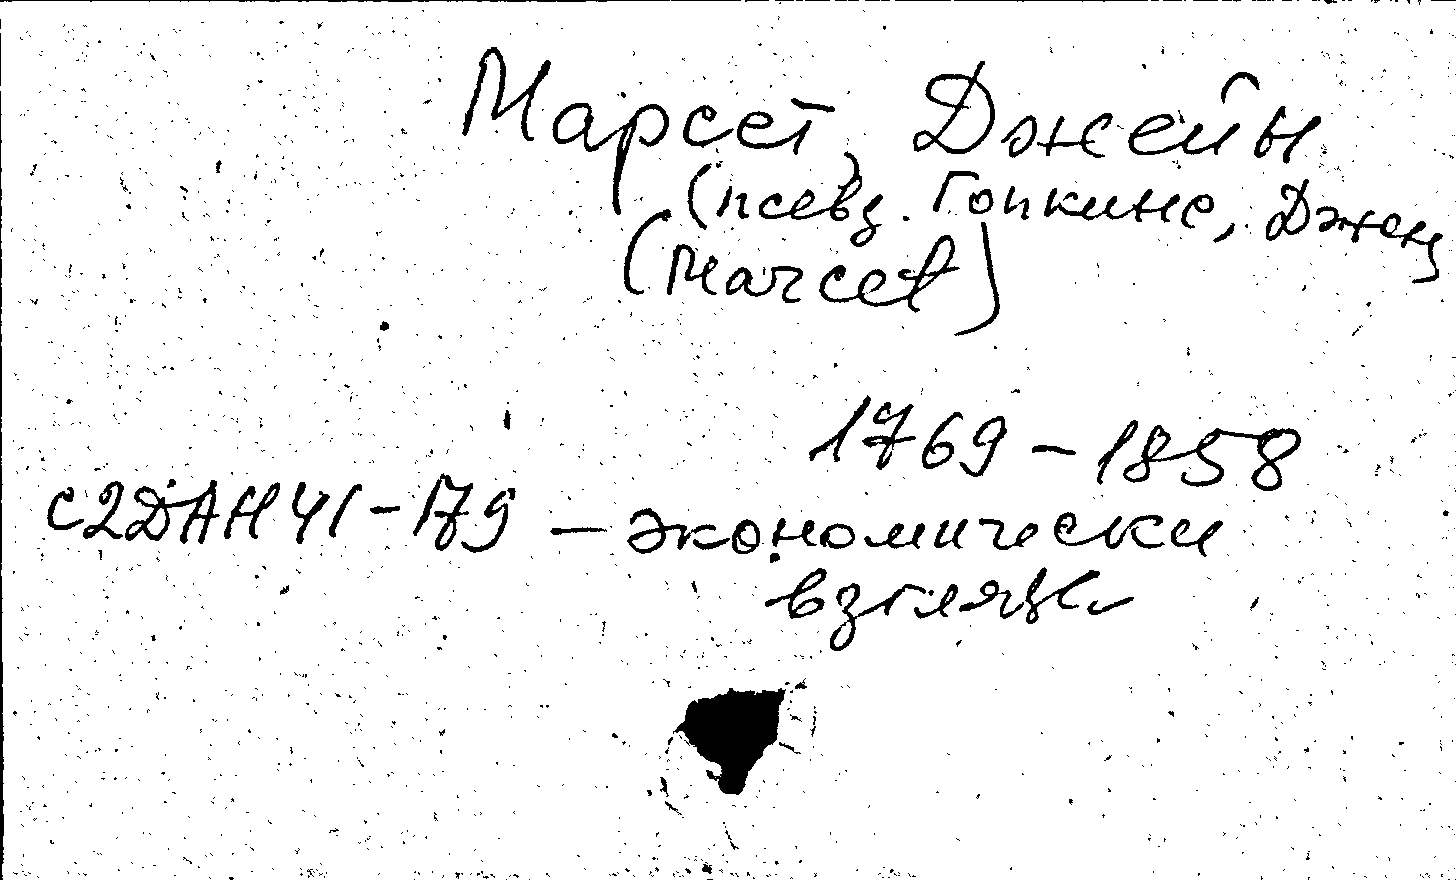 Марсет, Джейн
(псевд. Гопкинс, Джен
(Marcet)
1769-1858
С2DAH41-179 - экономически
взгляды